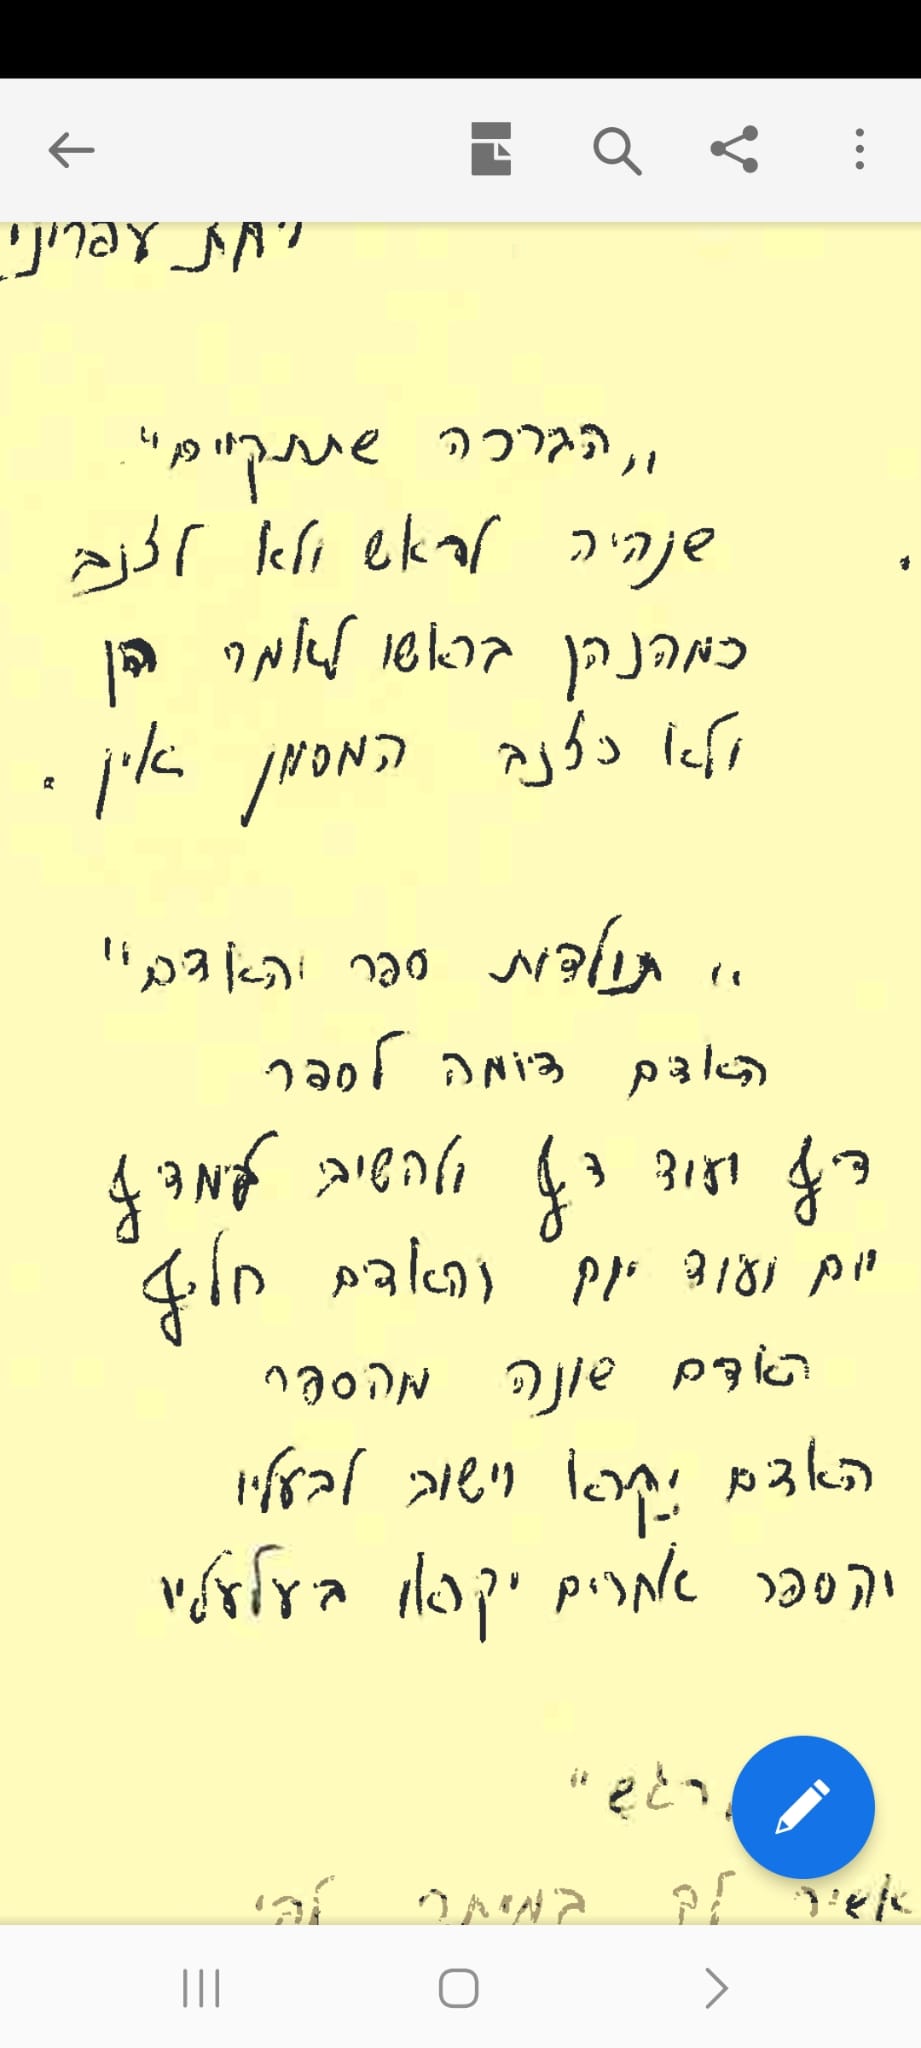 "הברכה שתתקיים"
שנהיה לראש ולא לזנב
כמהנהן בראשו לאמר הן
ולא כזנב המסמן אין.
"תולדות ספר והאדם"
האדם דומה לספר
דף ועוד דף ולהשיב למדף
יום ועוד יום והאדם חליף
האדם שונה מהספר
האדם יקרא וישוב לבעליו
והספר אחרים יקראו בעלעליו
רגש"
אשיר לך במיתרי לבי